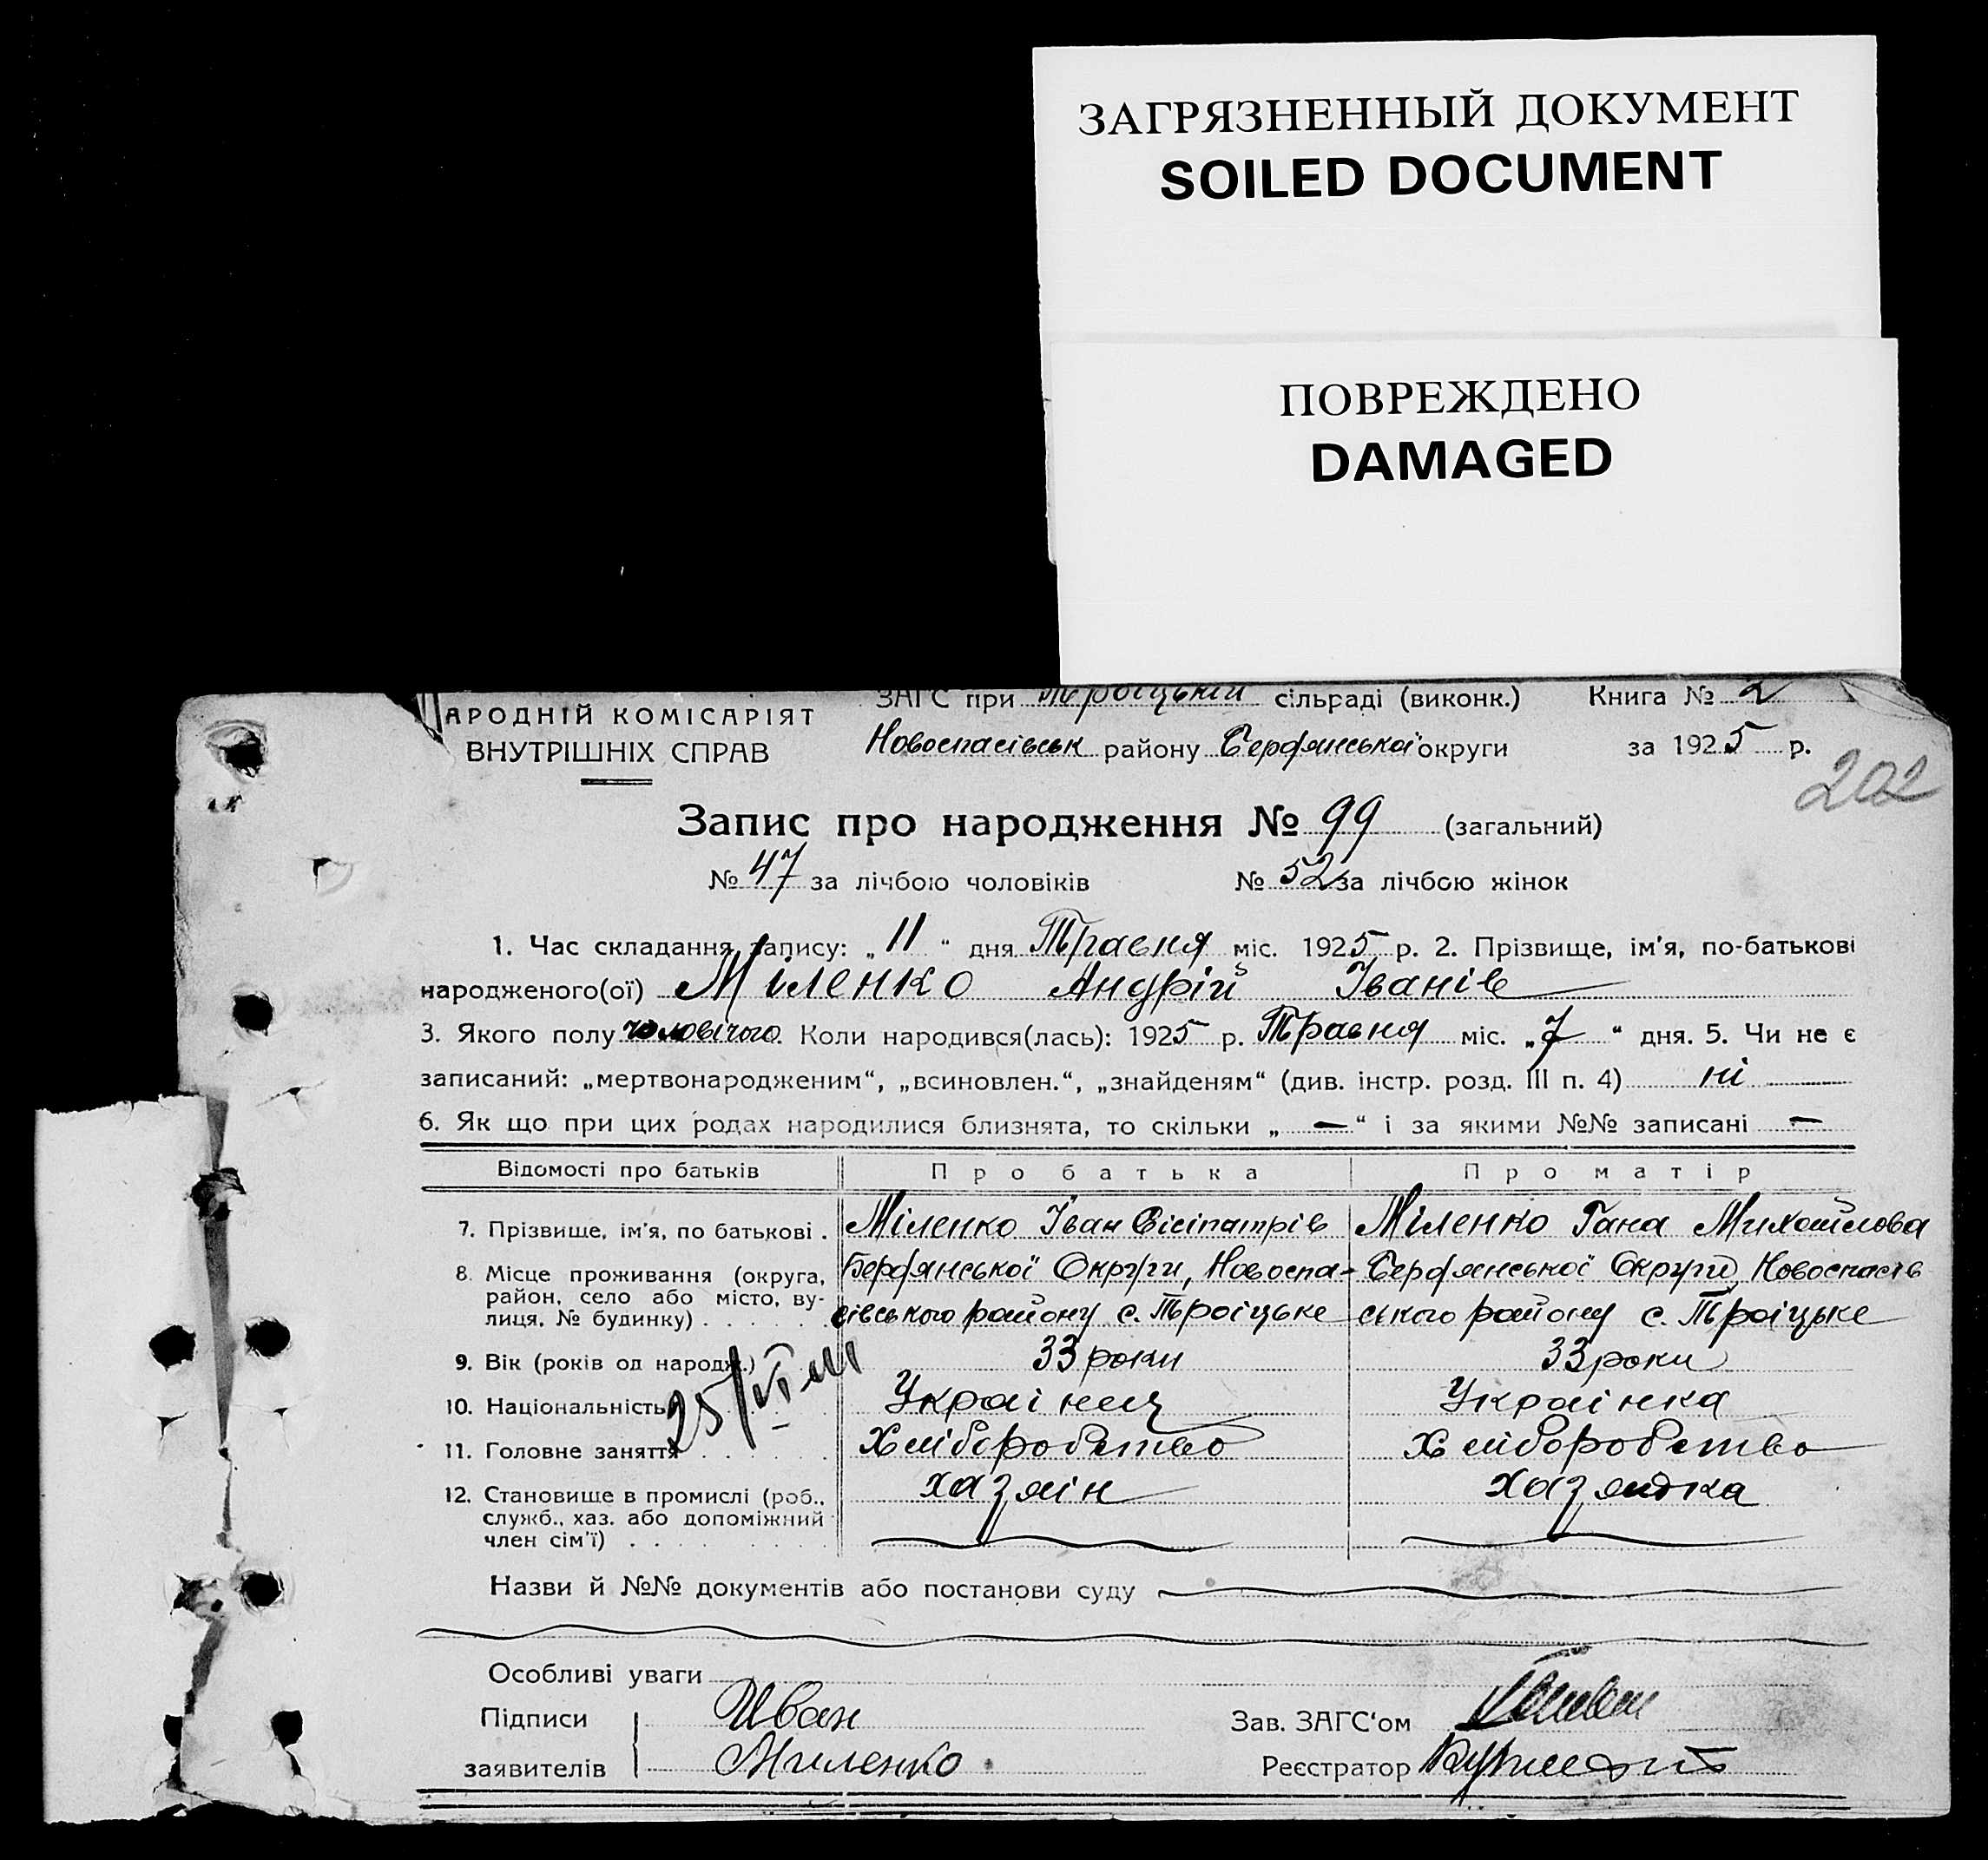 ЗАГРЯЗНЕННЫЙ ДОКУМЕНТ
SOILED DOCUMENT
ПОВРЕЖДЕНО
DAMAGED
НАРОДНІЙ КОМІСАРІЯТ
ВНУТРІШНІХ СПРАВ
ЗАГС при Троіцькій сільраді (виконк.) Книга № 2
Новоспасівськ району Бердянської округи за 1925 р.
202
Запис про народження № 99 (загальний)
№ 47 за лічбою чоловіків № 52 за лічбою жінок
1. Час складання запису: „11“ дня Травня міс. 1925 р. 2. Прізвище, ім'я, по-батькові
народженого(ої) Міленко Андрій Іванів
3. Якого полу чоловічого. Коли народився(лась): 1925 р. Травня міс. „7“ дня. 5. Чи не є
записаний: „мертвонародженим“, „всиновлен.“, „знайденям“ (див. інстр. розд. III п. 4) ні
6. Як що при цих родах народилися близнята, то скільки „ — “ і за якими №№ записані —
Відомості про батьків Про батька Про матір
7. Прізвище, ім'я, по батькові . Міленко Іван Сісіпатрів Міленко Гана Михайлова
8. Місце проживання (округа, район, село або місто, вулиця, № будинку) . . . . . Бердянської Округи, Новоспа- Бердянської Округи, Новоспасів
сівського району с. Троіцьке ського району с. Троіцьке
9. Вік (років од народж.) 33 роки 33 роки
10. Національність Украінец Украінка
25/VI
11. Головне заняття . . . . . Хліборобство Хліборобство
12. Становище в промислі (роб., хазяін хазяйка
служб., хаз. або допоміжний
член сім'ї) . . . .
Назви й №№ документів або постанови суду
Особливі уваги
Підписи Иван Зав. ЗАГС'ом
заявителів Миленко Реєстратор